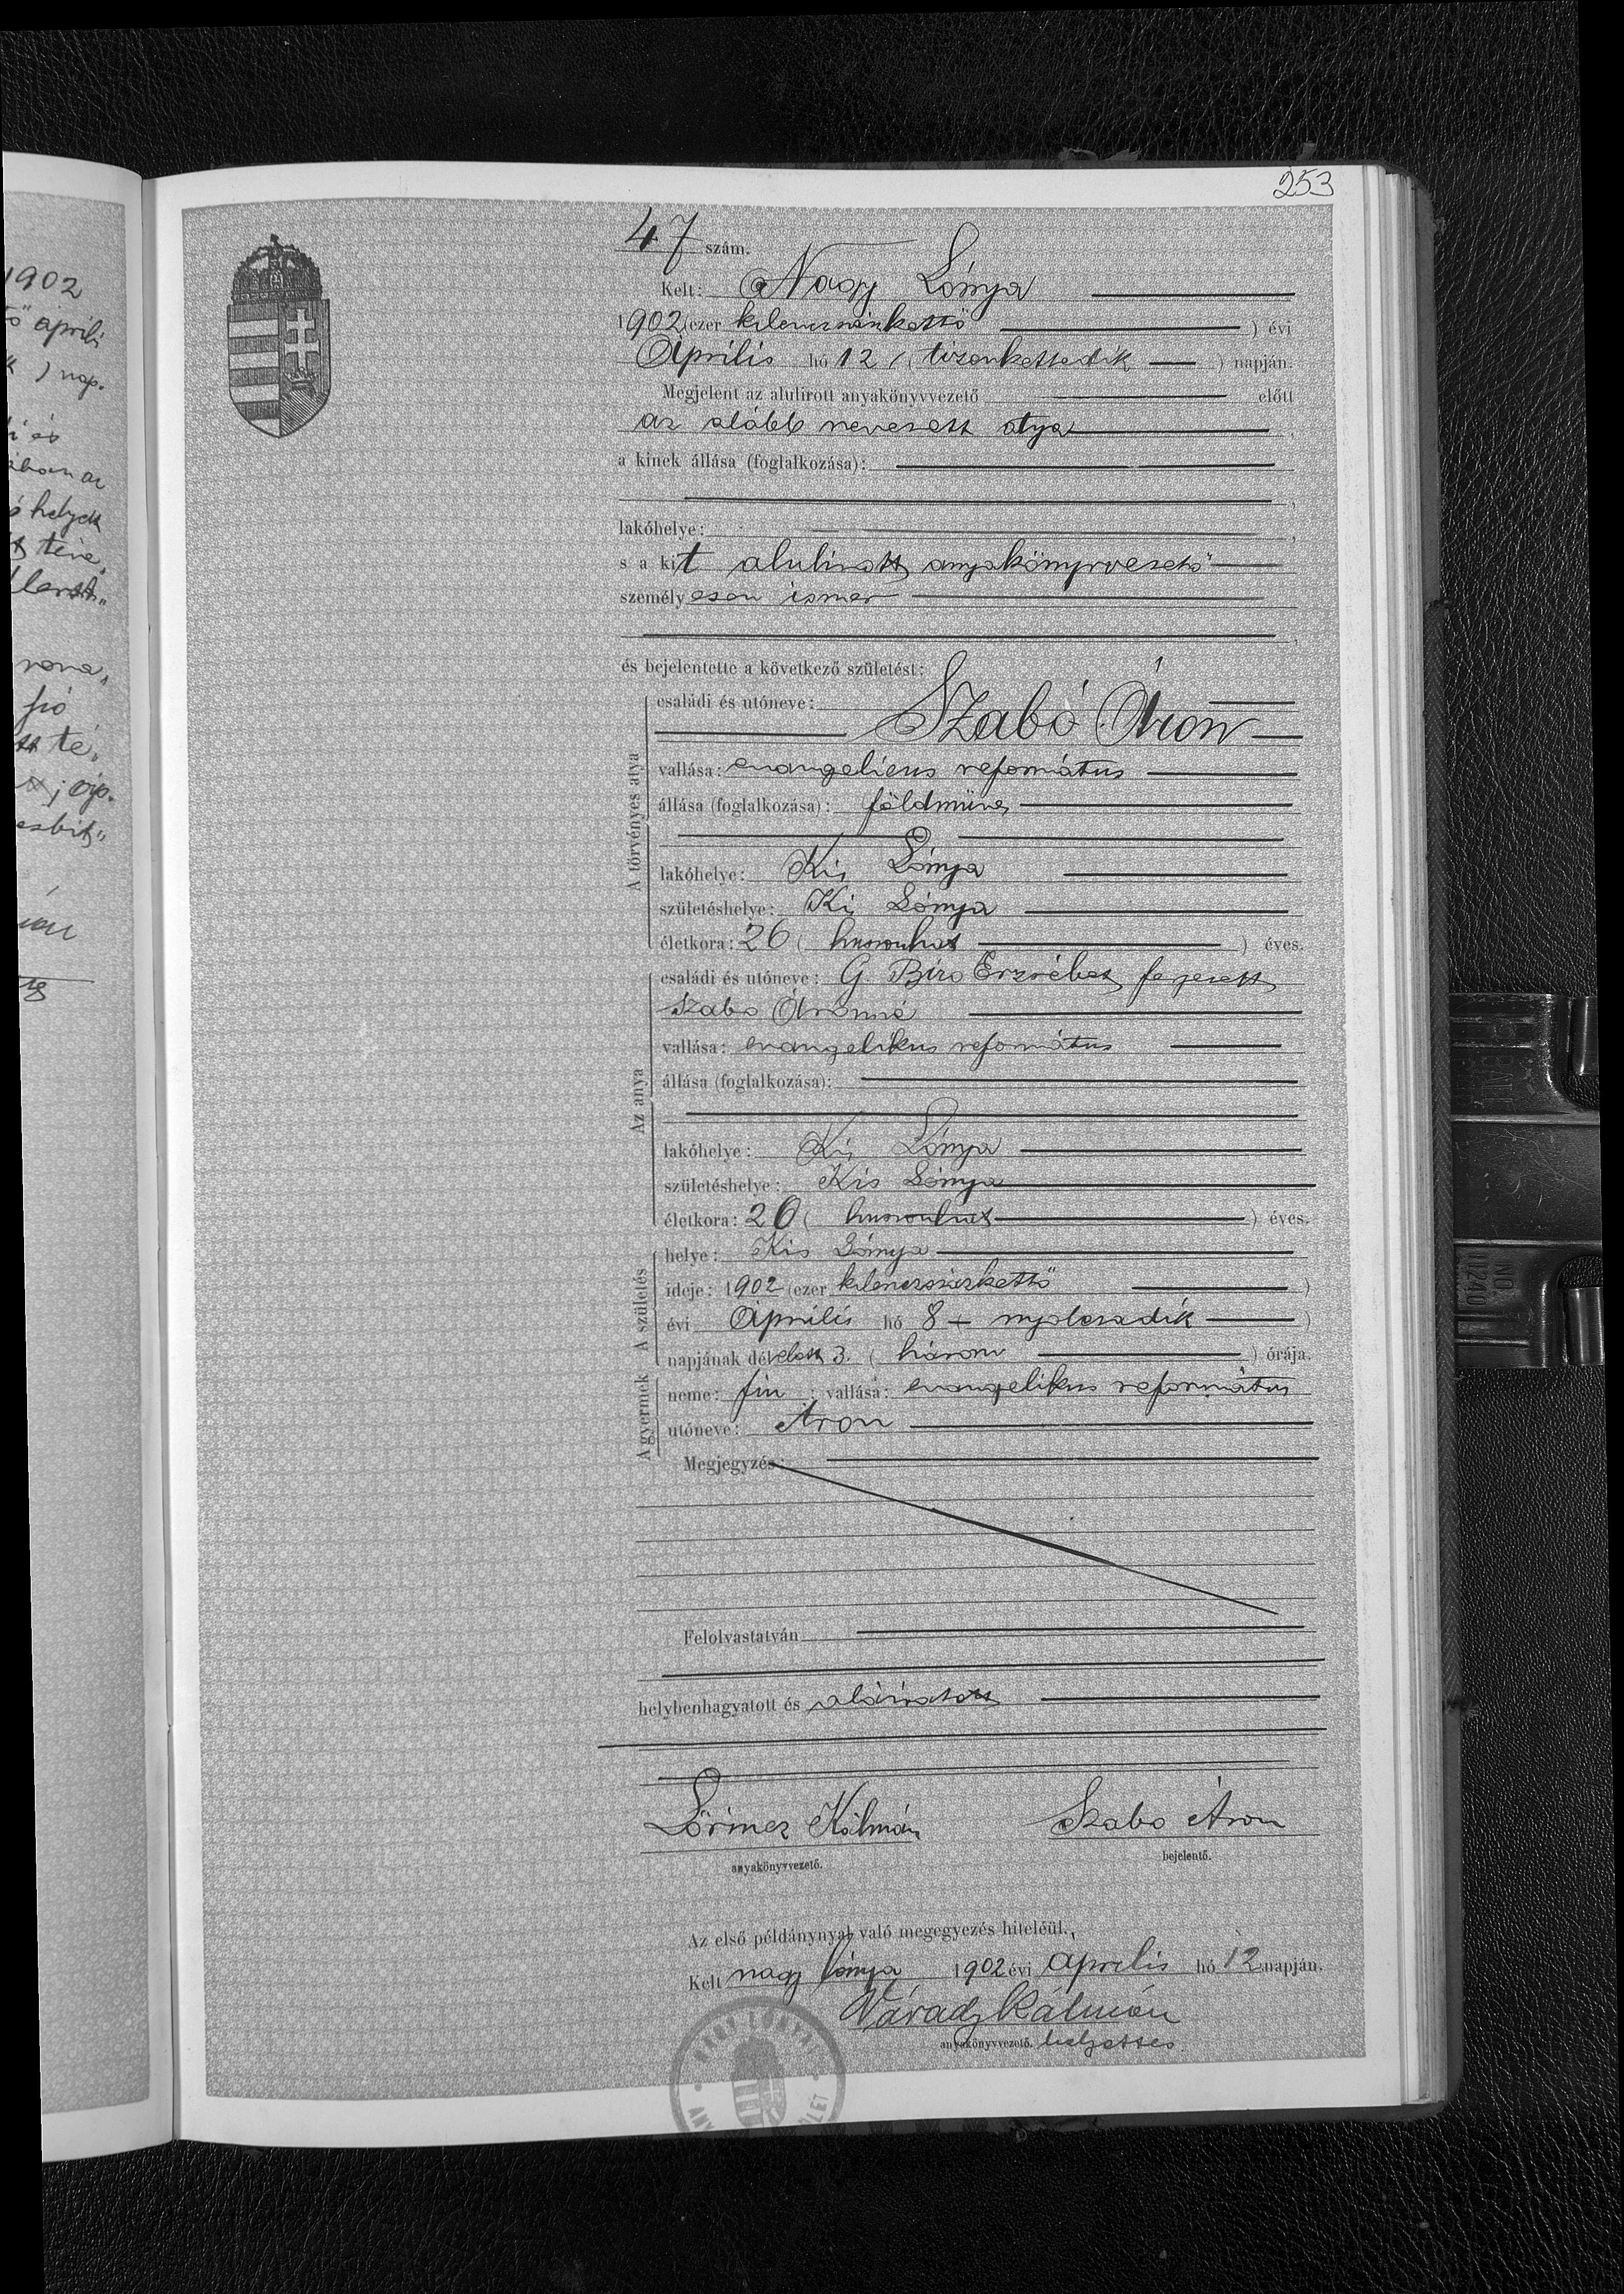 253
47 szám.
Kelt: Nagy Lónya
1902 (ezer kilencszázkettő ) évi
Április hó 12 ( tizenkettedik ) napján.
Megjelent az alulírott anyakönyvvezető előtt
az alább nevezett atya ,
a kinek állása (foglalkozása):
lakóhelye: ,
s a kit alulírott anyakönyvvezető
személyesen ismer
és bejelentette a következő születést:
A törvényes atya
családi és utóneve:
Szabó Áron
vallása: evangelicus református
állása (foglalkozása): földműves
lakóhelye: Kis Lónya
születéshelye: Kis Lónya
életkora: 26 ( huszonhat ) éves.
Az anya
családi és utóneve: G. Biro Erzsébet férjezett
Szabo Áronné
vallása: evangelikus református
állása (foglalkozása):
lakóhelye: Kis Lónya
születéshelye: Kis Lónya
életkora: 26 ( huszonhat ) éves.
A születés
helye: Kis Lónya
ideje: 1902 (ezer kilenczszázkettő )
évi Április hó 8 nyolczadik )
napjának délelőtt 3. ( három ) órája.
A gyermek
neme: fiu ; vallása: evangelikus református
utóneve: Áron
Megjegyzés:
Felolvastatván
helybenhagyatott és aláiratott
Lőrincz Kálmán Szabo Áron
anyakönyvvezető. bejelentő.
Az első példánynyal való megegyezés hiteléül.
Kelt nagy lónya 1902 évi április hó 12 napján.
Várady Kálmán
anyakönyvvezető. helyettes
NAGY LÓNYAI
1902
április
) nap.
helyek